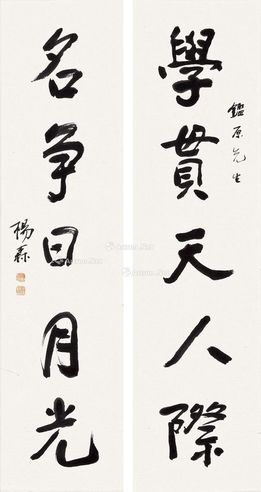 學貫天人際
鑑原先生
名爭日月光
楊森